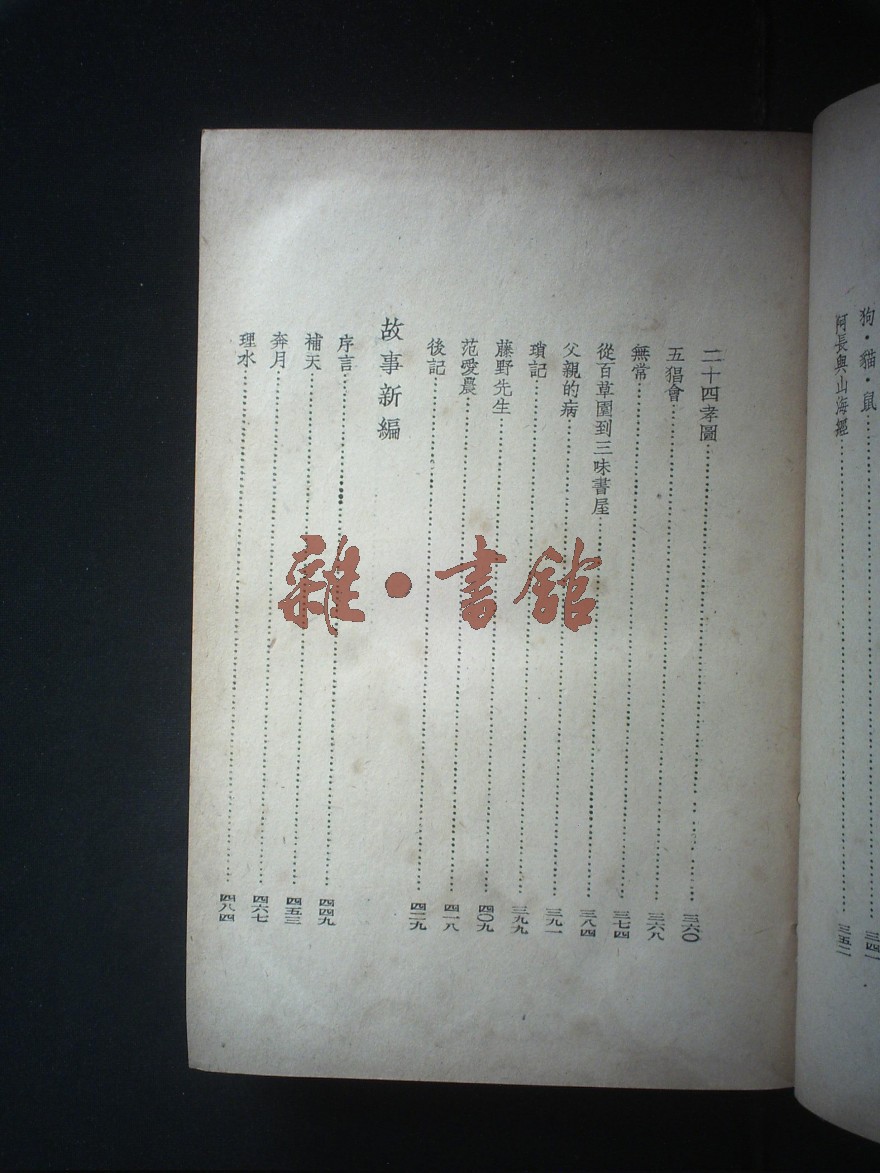 狗·貓·鼠……三四二
阿長與山海經……三五二
二十四孝圖……三六〇
五猖會……三六八
無常……三七四
從百草園到三味書屋……三八四
父親的病……三九一
瑣記……三九九
藤野先生……四〇九
范愛農……四一八
後記……四二九
故事新編
序言……四四九
補天……四五三
奔月……四六七
理水……四八四
雜·書館